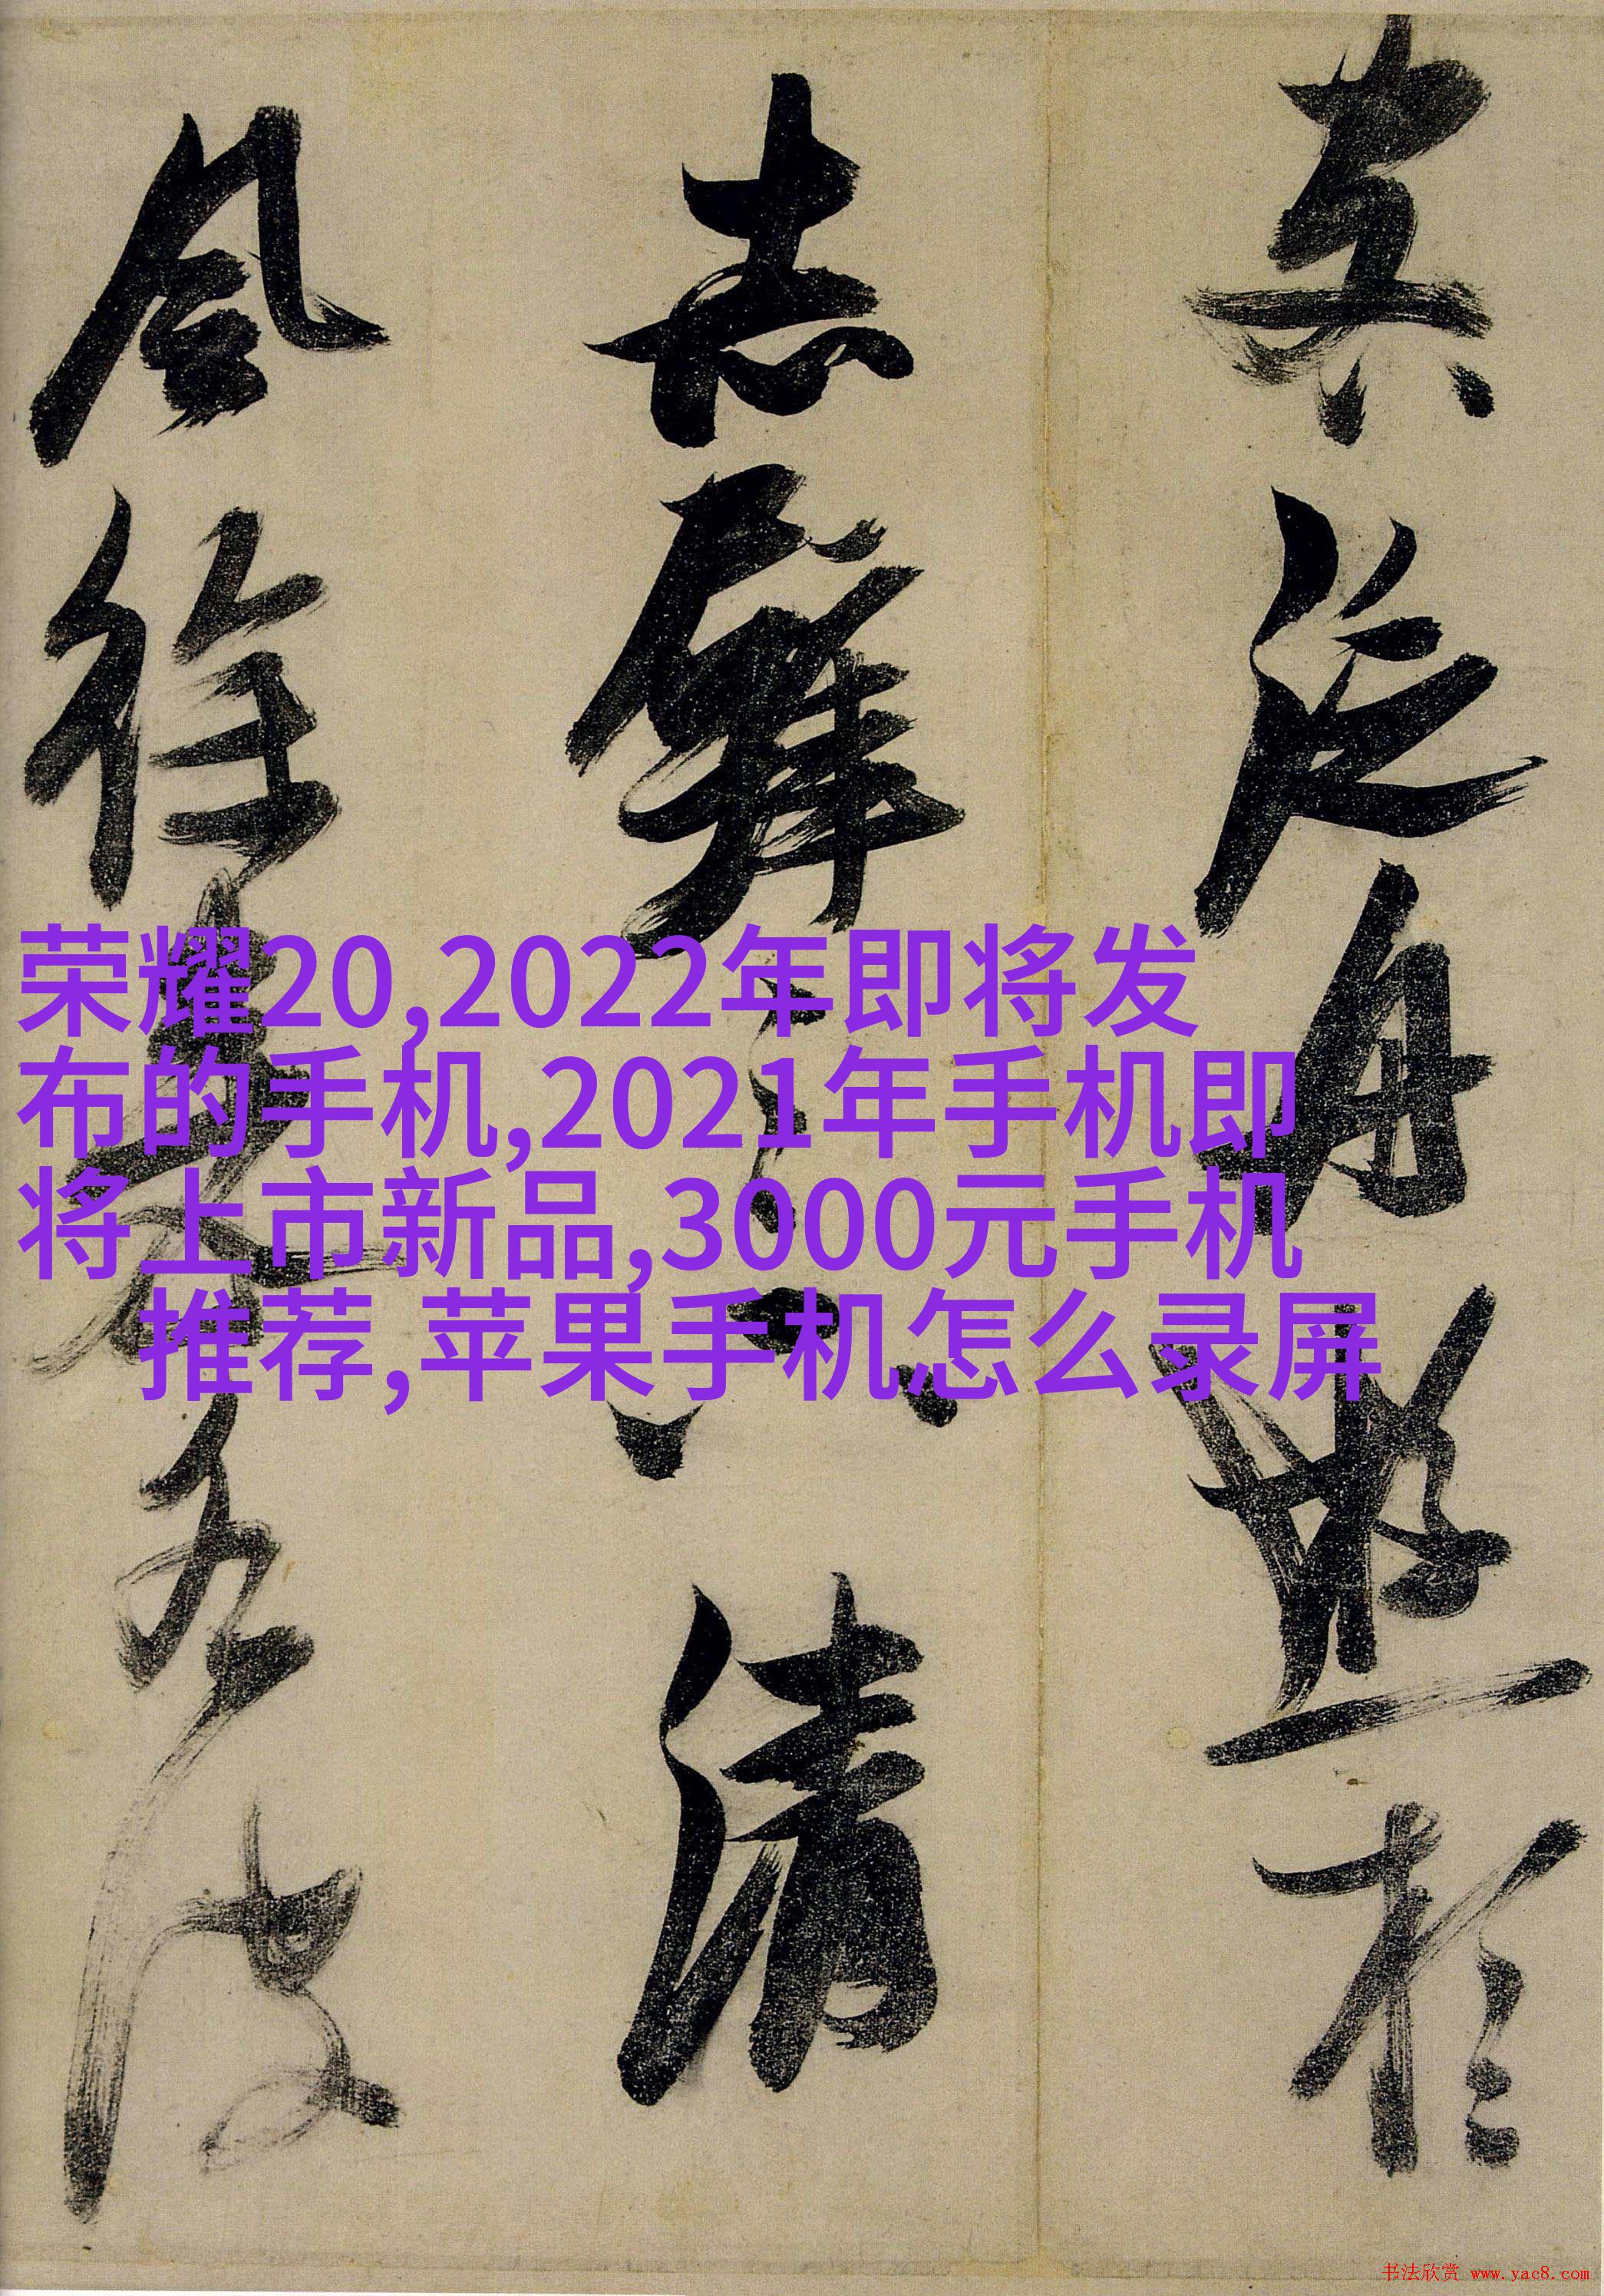 泛舟遊於
赤壁之下清
風徐來水波
荣耀20,2022年即将发
布的手机,2021年手机即
将上市新品,3000元手机
推荐,苹果手机怎么录屏
书法欣赏 www.yac8.com